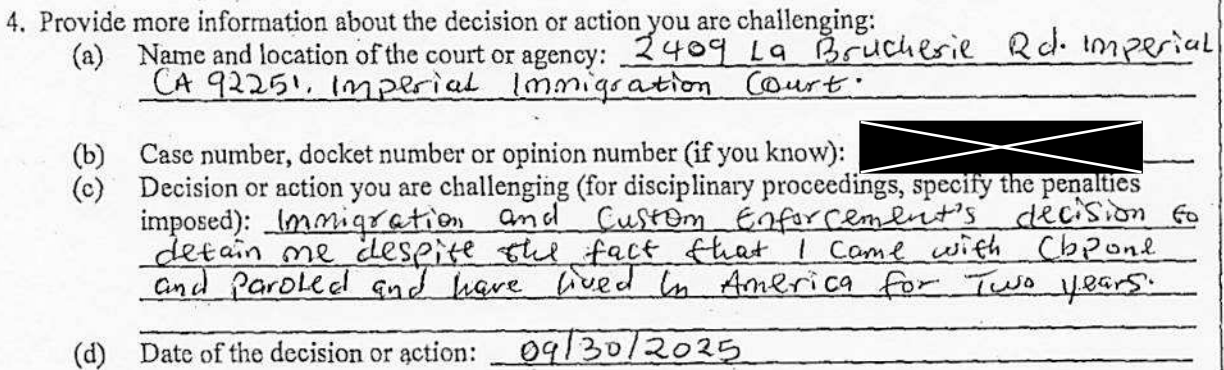 4. Provide more information about the decision or action you are challenging:
(a) Name and location of the court or agency: 2409 La Brucherie Rd. Imperial
CA 92251. Imperial Immigration Court.
(b) Case number, docket number or opinion number (if you know):
(c) Decision or action you are challenging (for disciplinary proceedings, specify the penalties
imposed): Immigration and Custom Enforcement's decision to
detain me despite the fact that I came with Cbpone
and Paroled and have lived in America for Two years.
(d) Date of the decision or action: 09/30/2025